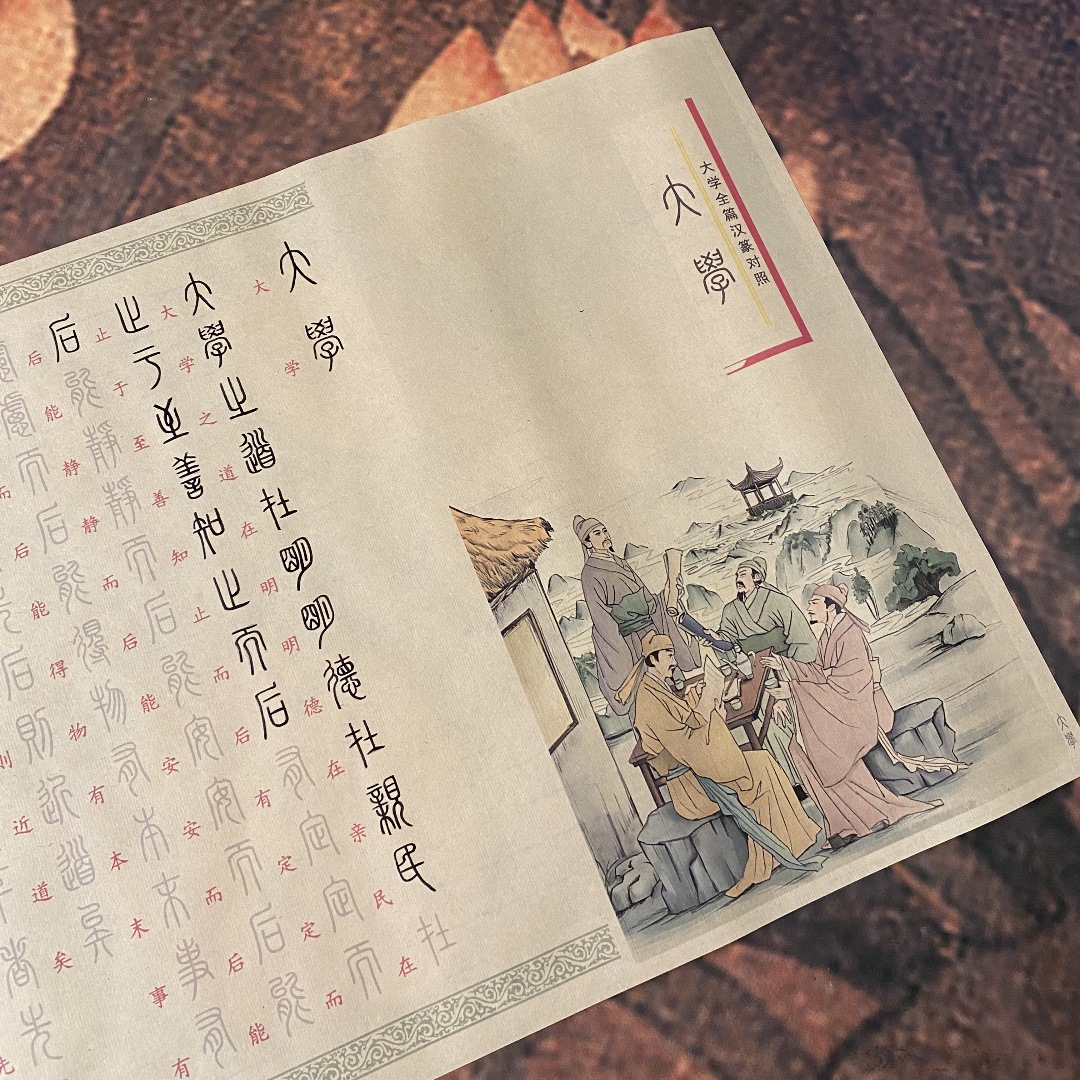 大学全篇汉篆对照
大學
大學
大学
大學之道在明明德在親民在
大学之道在明明德在亲民在
止于至善知止而后有定定而
止于至善知止而后有定定而
后能靜靜而后能安安而后能
后能静静而后能安安而后能
慮慮而后能得物有本末事有
而后能得物有本末事有
后則近道矣
近道矣
者先
先
大學